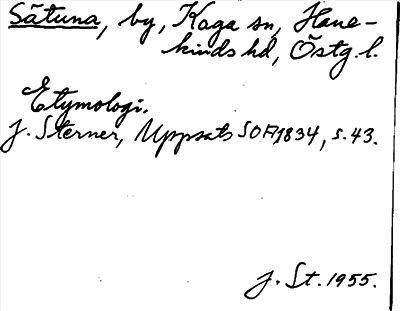 Sätuna, by, Kaga sn, Hane-
kinds hd, Östg. l.
Etymologi.
J. Sterner, Uppsats SOFI 1834, s. 43.
J. St. 1955.